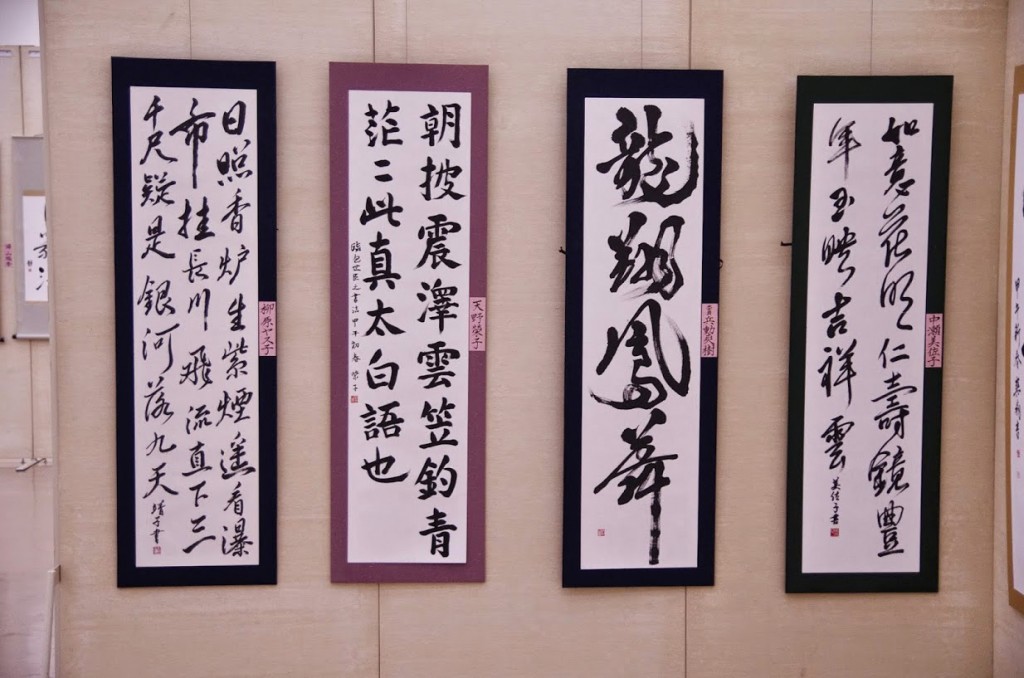 日照香炉生紫煙遥看瀑
布挂長川飛流直下三
千尺疑是銀河落九天
朝披震澤雲笠釣青
茫〻此真太白語也
臨包世臣之書法甲午初春 榮子
天野榮子
龍翔鳳舞
如意花明仁壽鏡豊
年玉映吉祥雲
美佐子書
中瀬美佐子